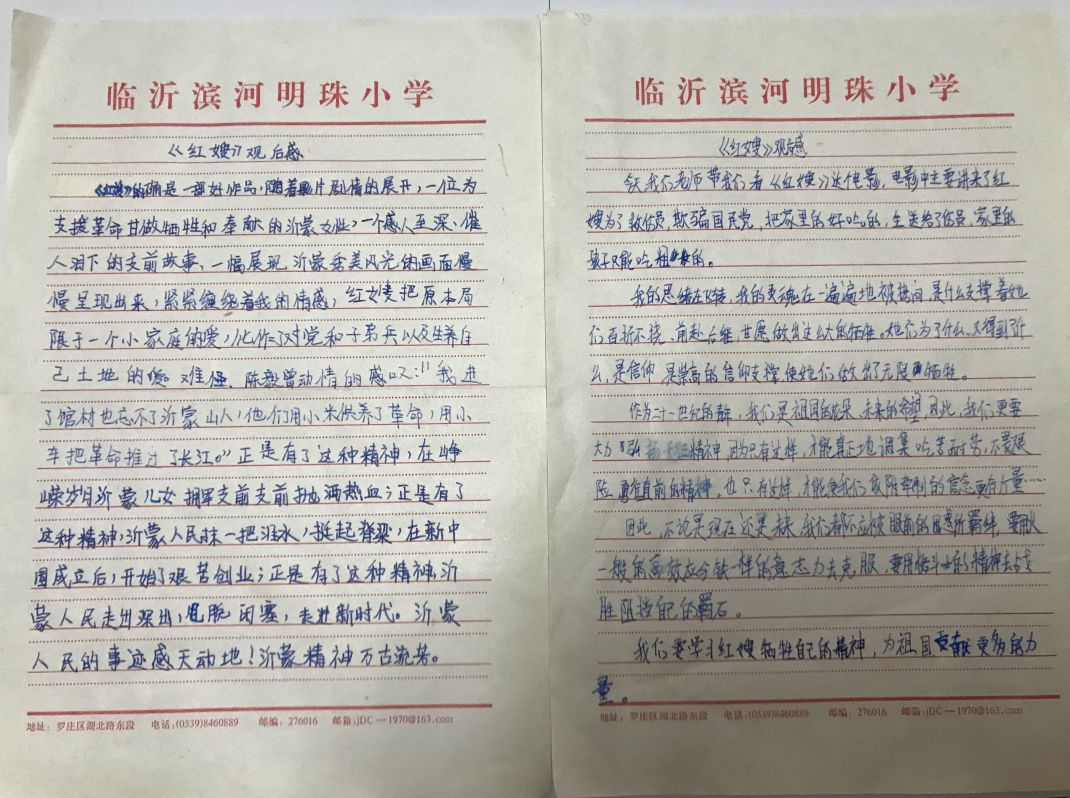 临沂滨河明珠小学
《红嫂》观后感
《红嫂》的确是一部好作品，随着影片剧情的展开，一位为
支援革命甘做牺牲和奉献的沂蒙女性，一个感人至深、催
人泪下的支前故事、一幅展现沂蒙秀美风光的画面慢
慢呈现出来，紧紧缠绕着我的情感，红嫂把原本局
限于一个小家庭的爱，化作了对党和子弟兵以及生养自
己土地的爱难怪、陈毅曾动情的感叹：“我进
了馆材也忘不了沂蒙山人，他们用小米供养了革命，用小
车把革命推过了长江。”正是有了这种精神，在峥
嵘岁月沂蒙儿女拥军支前支前抛洒热血；正是有了
这种精神，沂蒙人民抹一把泪水，挺起脊梁，在新中
国成立后，开始了艰苦创业；正是有了这种精神，沂
蒙人民走出深山，摆脱闭塞，走进新时代。沂蒙
人民的事迹感天动地！沂蒙精神万古流芳。
地址：罗庄区湖北路东段 电话：(0539)8460889 邮编：276016 邮箱：jDC—1970@163.com
临沂滨河明珠小学
《红嫂》观后感
今天我们老师带我们看《红嫂》这个电影，电影中主要讲来了红
嫂为了救伤员，欺骗国民党，把家里的好吃的，全送给了伤员，家里的
孩子只能吃粗粮的。
我的思绪在飞转，我的灵魂在一遍遍地被拷问是什么支撑着她
们百折不挠、前赴后继，甘愿做出这么大的牺牲。她们为了什么、又得到了什
么，是信仰，是崇高的信仰支撑使她们做出了无限牺牲。
作为二十一世纪的青年，我们是祖国的花朵、未来的希望，因此，我们更要
大力“弘扬精神，因为只有这样，才能真正地调集吃苦耐劳，不畏艰
险勇往直前的精神，也只有这样，才能使我们的信念更有力量……
因此，不论是现在还是未来，我们都不应被眼前的所羁绊，要用火
一般的高效应今铁一样的意志力去克服，要用奋斗的精神去战
胜阻挡自己的石。
我们要学习红嫂牺牲自己的精神，为祖国贡献更多的力
量。
地址：罗庄区湖北路东段 电话：(0539)8460889 邮编：276016 邮箱：jDC—1970@163.com